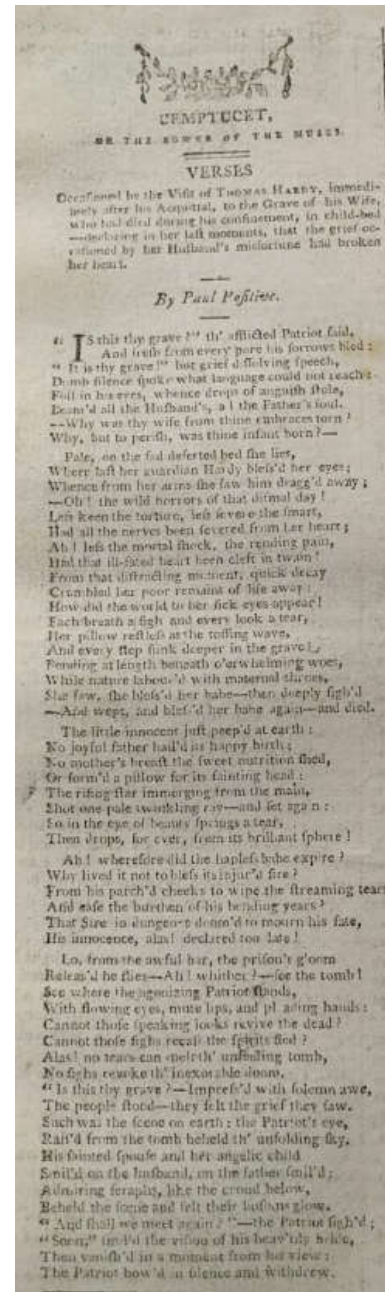 CEMPTUCET,
OR THE BOWER OF THE MUSES.
VERSES
Occasioned by the Visit of THOMAS HARDY, immedi-
ately after his Acquittal, to the Grave of his Wife,
who had died during his confinement, in child-bed
—declaring in her last moments, that the grief oc-
casioned by her Husband's misfortune had broken
her heart.
By Paul Positive.
" IS this thy grave?" th' afflicted Patriot said,
And fresh from every pore his sorrows bled:
" It is thy grave!" but grief dissolving speech,
Dumb silence spoke what language could not reach:
Full in his eyes, whence drops of anguish stole,
Beam'd all the Husband's, all the Father's soul.
—Why was thy wife from thine embraces torn?
Why, but to perish, was thine infant born?—
Pale, on the sad deserted bed she lies,
Where last her guardian Hardy bless'd her eyes;
Whence from her arms she saw him dragg'd away;
—Oh! the wild horrors of that dismal day!
Less keen the torture, less severe the smart,
Had all the nerves been severed from her heart;
Ah! less the mortal shock, the rending pain,
Had that ill-fated heart been cleft in twain!
From that distracting moment, quick decay
Crumbled her poor remains of life away!
How did the world to her sick eyes appear!
Each breath a sigh and every look a tear,
Her pillow restless as the tossing wave,
And every step sunk deeper in the grave!
Bending at length beneath o'erwhelming woes,
While nature labour'd with maternal throes,
She saw, she bless'd her babe—then deeply sigh'd
—And wept, and bless'd her babe again—and died.
The little innocent just peep'd at earth:
No joyful father hail'd its happy birth;
No mother's breast the sweet nutrition shed,
Or form'd a pillow for its fainting head:
The rising star immerging from the main,
Shot one pale twinkling ray—and set again:
So in the eye of beauty springs a tear,
Then drops, for ever, from its brilliant sphere!
Ah! wherefore did the hapless babe expire?
Why lived it not to bless its injur'd sire?
From his parch'd cheeks to wipe the streaming tear
And ease the burthen of his bending years?
That Sire in dungeons doom'd to mourn his fate,
His innocence, alas! declared too late!
Lo, from the awful bar, the prison's gloom
Releas'd he flies—Ah! whither?—see the tomb!
See where the agonizing Patriot stands,
With flowing eyes, mute lips, and pleading hands:
Cannot those speaking looks revive the dead?
Cannot those sighs recall the spirits fled?
Alas! no tears can melt th' unfeeling tomb,
No sighs revoke th' inexorable doom.
" Is this thy grave?—Impress'd with solemn awe,
The people stood—they felt the grief they saw.
Such was the scene on earth: the Patriot's eye,
Rais'd from the tomb beheld th' unfolding sky.
His sainted spouse and her angelic child
Smil'd on the husband, on the father smil'd;
Admiring seraphs, like the croud below,
Beheld the scene and felt their bosoms glow.
" And shall we meet again?"—the Patriot sigh'd;
" Soon," smil'd the vision of his heav'nly bride,
Then vanish'd in a moment from his view:
The Patriot bow'd in silence and withdrew.